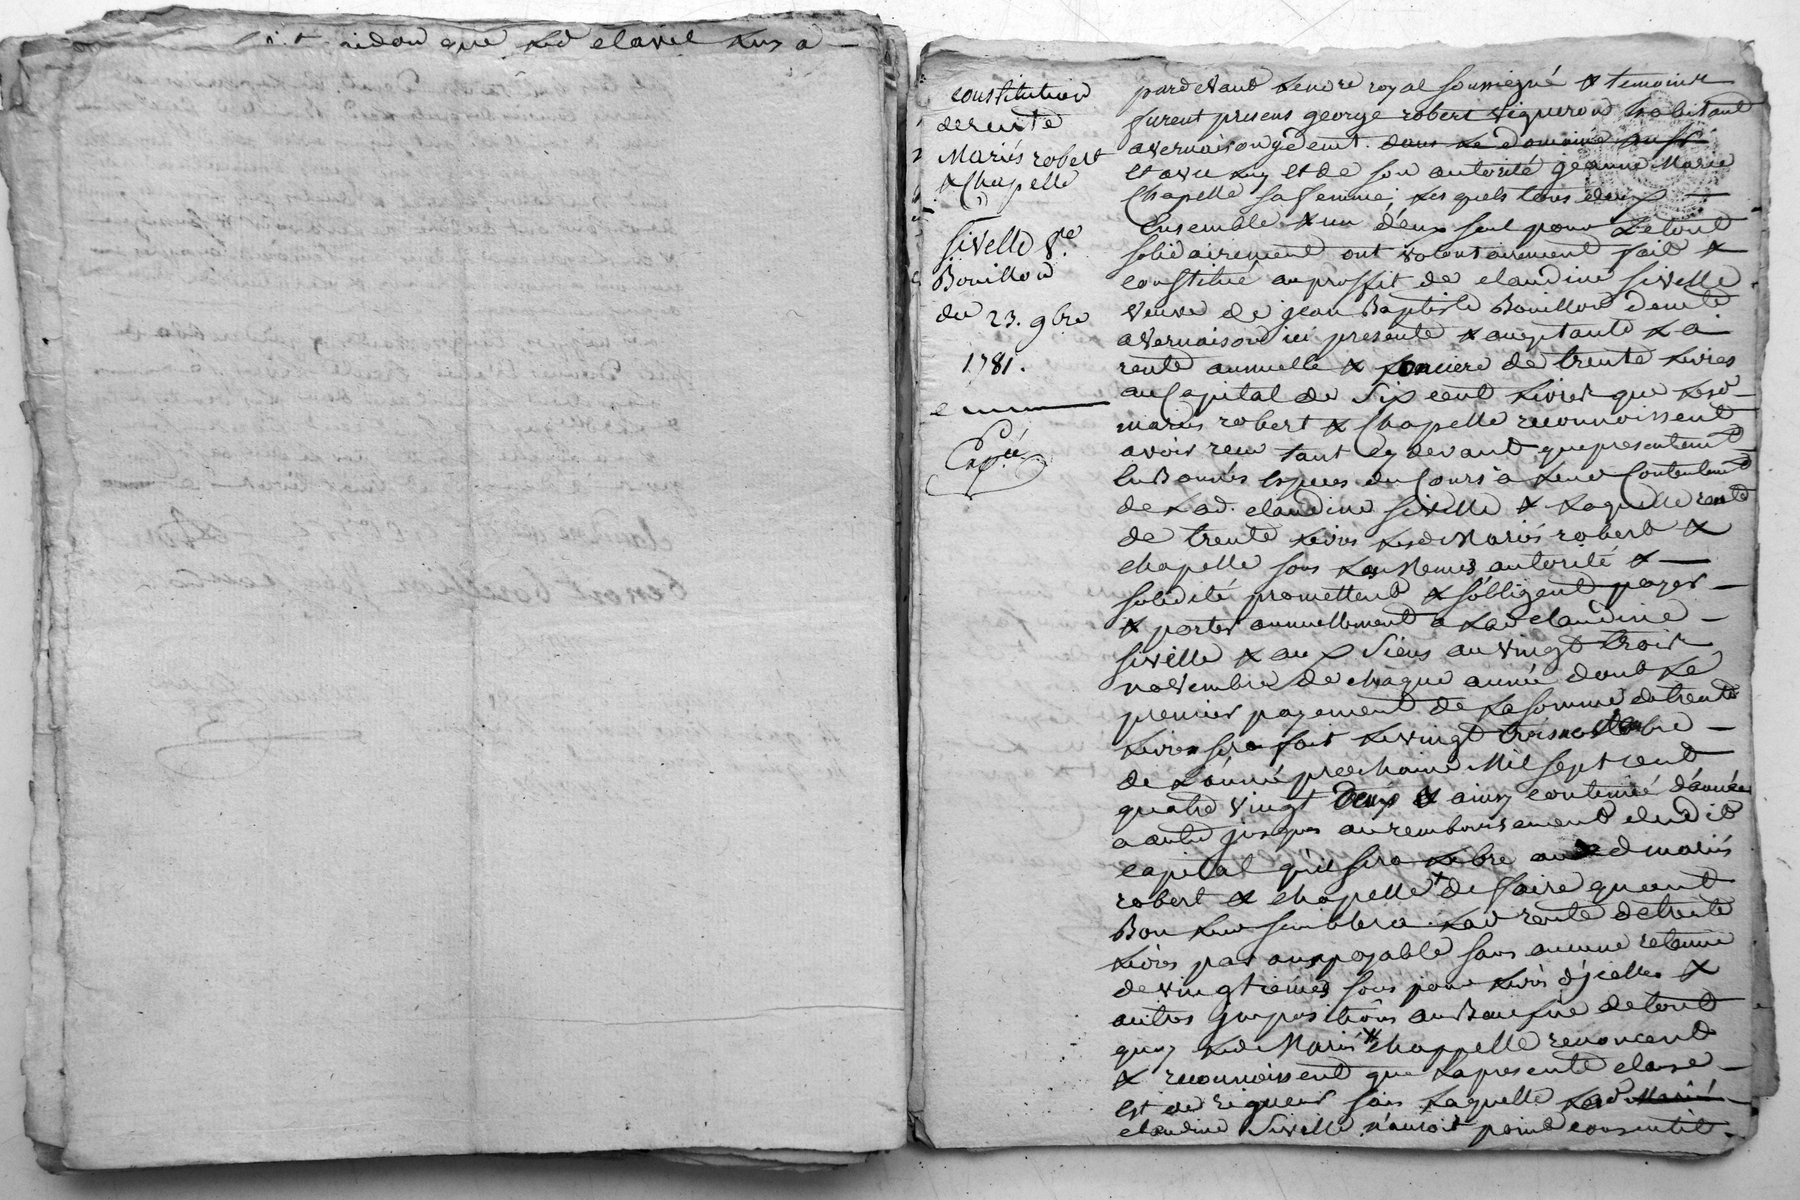 que led clavel
constitution
de rente
Mariés robert
& Chapelle
à
Sivelle Ve
Bouillon
du 23. 9bre
1781.
Expéé
pardevant le nore royal soussigné & temoins
furent presens george robert vigneron habitant
a vernaison y demt. dans le domaine
et avec luy et de son autorité jeanne Marie
Chapelle sa femme, lesquels tous deux
Ensemble & un d'eux seul pour le tout
solidairement ont volontairement fait &
constitué au proffit de claudine Sivelle
veuve de jean Baptiste Bouillon demte
a vernaison ici presente & aceptante la
rente annuelle & fonciere de trente livres
au Capital de Six cent livres que lesd
mariés robert & Chapelle reconnoissent
avoir recu tant cy devant que presentement
En Bonnes Especes du Cours à leur Contentemt
de lad. claudine Sivelle & laquelle rente
de trente livres lesd Mariés robert &
chapelle sous les Memes autorité &
solidité promettent & s'obligent payer
& porter annuellement a lad claudine
Sivelle & aux Siens au vingt trois
novembre de chaque année dont le
premier payement de la somme de trente
livres sera fait le vingt trois novembre
de l'année prochaine Mil sept cent
quatre vingt deux & ainsy continué d'année
a autre jusques au remboursement dudit
capital qu'il sera libre auxd mariés
robert & chapelle de faire quand
Bon leur semblera lad rente de trente
livres par an payable sans aucune retenue
de vingtiemes sous pour livres d'jcelles &
autres jmpositions au Benefice de tout
quoy lesd Mariés & chappelle renoncent
& reconnoissent que la presente clause
est de rigueur sans laquelle lad
claudine Sivelle n'auroit point consentit